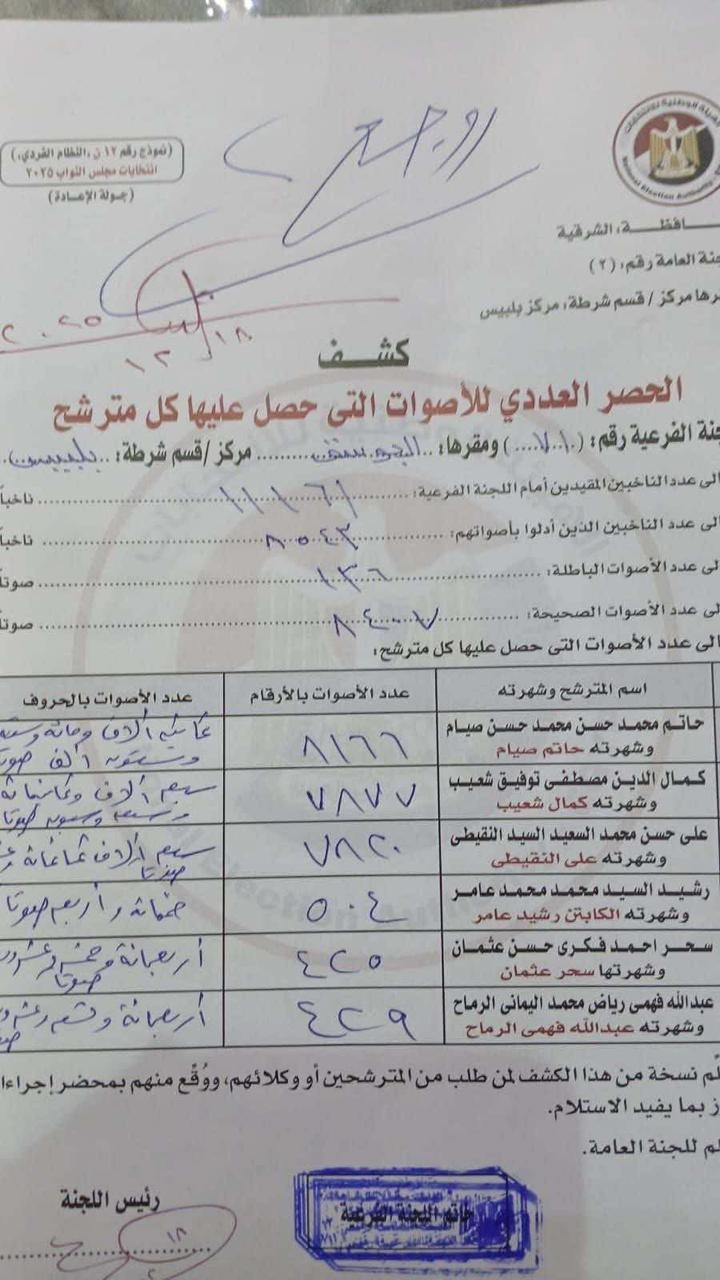 (نموذج رقم ١٢ ن، النظام الفردي،)
انتخابات مجلس النواب ٢٠٢٥
(جولة الإعادة)
National Election Authority
ـافظـــة: الشرقية
جنة العامة رقم: (٢)
ـرها مركز / قسم شرطة: مركز بلبيس
١٨ / ١٢ / ٢٠٢٥
كشف
الحصر العددي للأصوات التى حصل عليها كل مترشح
جنة الفرعية رقم: ( ) ومقرها: مركز /قسم شرطة: بلبيس
لى عدد الناخبين المقيدين أمام اللجنة الفرعية: ١١١٦١ ناخباً
لى عدد الناخبين الذين أدلوا بأصواتهم: ٨٥٤٣ ناخباً
لى عدد الأصوات الباطلة: ١٣٦ صوتاً
لى عدد الأصوات الصحيحة: ٨٤٠٧ صوتاً
الى عدد الأصوات التى حصل عليها كل مترشح:
اسم المترشح وشهرته عدد الأصوات بالأرقام عدد الأصوات بالحروف
حاتم محمد حسن محمد حسن صيام
وشهرته حاتم صيام
٨١٦٦
ثمانية آلاف ومائة وستة
وستون ألف صوتا
كمال الدين مصطفى توفيق شعيب
وشهرته كمال شعيب
٧٨٧٧
سبعة آلاف وثمانمائة
وسبعة وسبعون صوتا
على حسن محمد السعيد السيد النقيطى
وشهرته على النقيطى
٧٨٢٠
سبعة آلاف ثمانمائة
صوتا
رشيد السيد محمد محمد عامر
وشهرته الكابتن رشيد عامر
٥٠٤
خمسمائة وأربعة صوتا
سحر احمد فكرى حسن عثمان
وشهرتها سحر عثمان
٤٢٥
أربعمائة وخمسة وعشرون
صوتا
عبدالله فهمى رياض محمد اليمانى الرماح
وشهرته عبدالله فهمى الرماح
٤٢٩
أربعمائة وتسعة
ـلّم نسخة من هذا الكشف لمن طلب من المترشحين أو وكلائهم، ووُقّع منهم بمحضر إجراءا
ـز بما يفيد الاستلام.
ـلم للجنة العامة.
رئيس اللجنة
خاتم اللجنة الفرعية